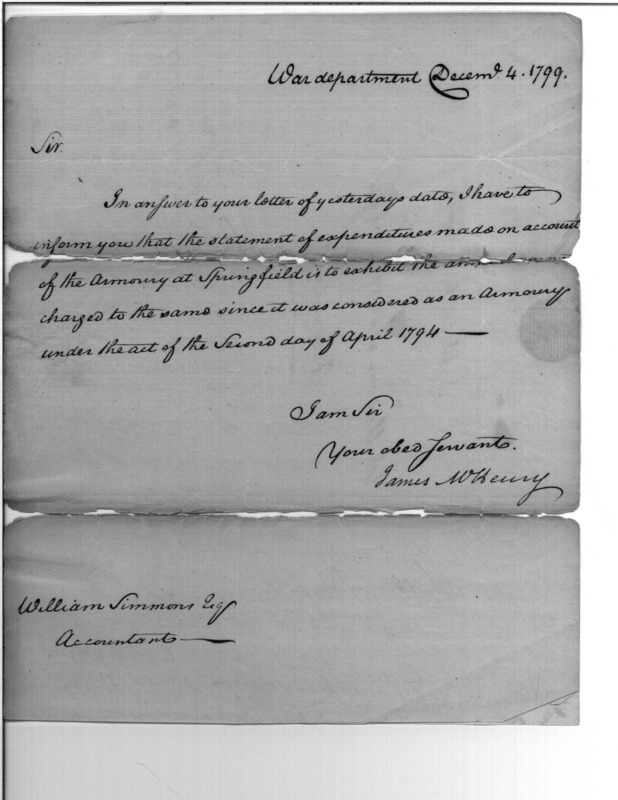 War department Decemr 4. 1799.
Sir.
In answer to your letter of yesterdays date, I have to
inform you that the statement of expenditures made on account
of the Armoury at Springfield is to exhibit the
charged to the same since it was considered as an Armoury
under the act of the Second day of April 1794 —
I am Sir
Your obed servant.
James McHenry
William Simmons Esq
Accountant —